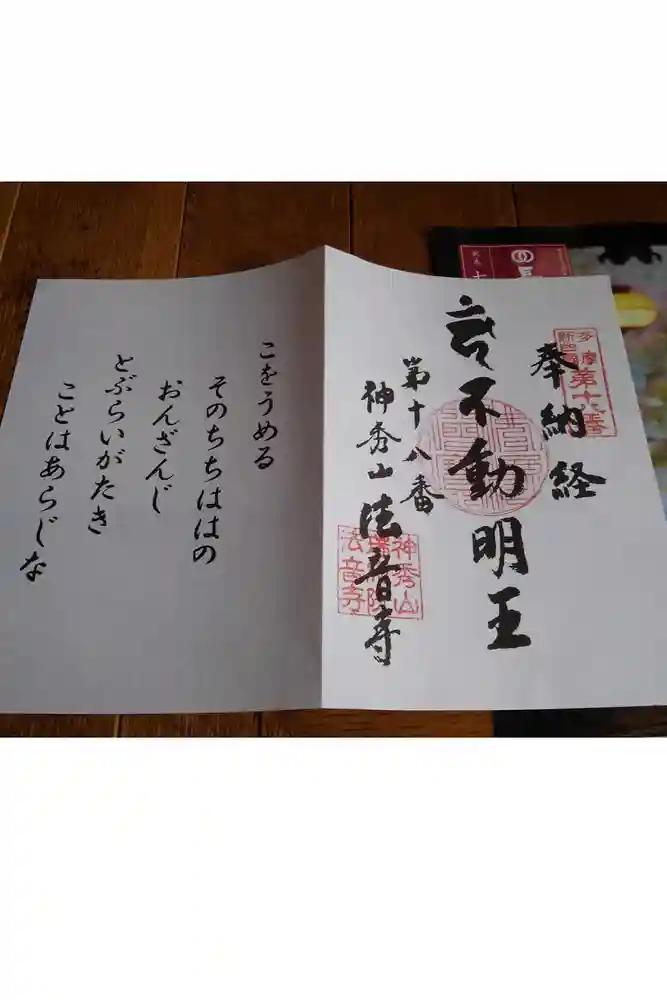 奉納経
不動明王
第十八番
神秀山法音寺
多摩
新四国
第十八番
神秀山
法音寺
こをうめる
そのちちははの
おんざんじ
とぶらいがたき
ことはあらじな